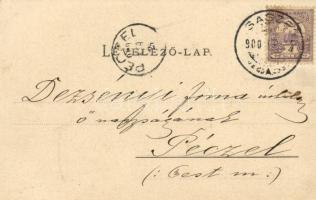 PÉCZEL
LEVELEZŐ-LAP.
900
Dezsenyi Irma
ő nagyságának
Péczel
(: Pest m :)